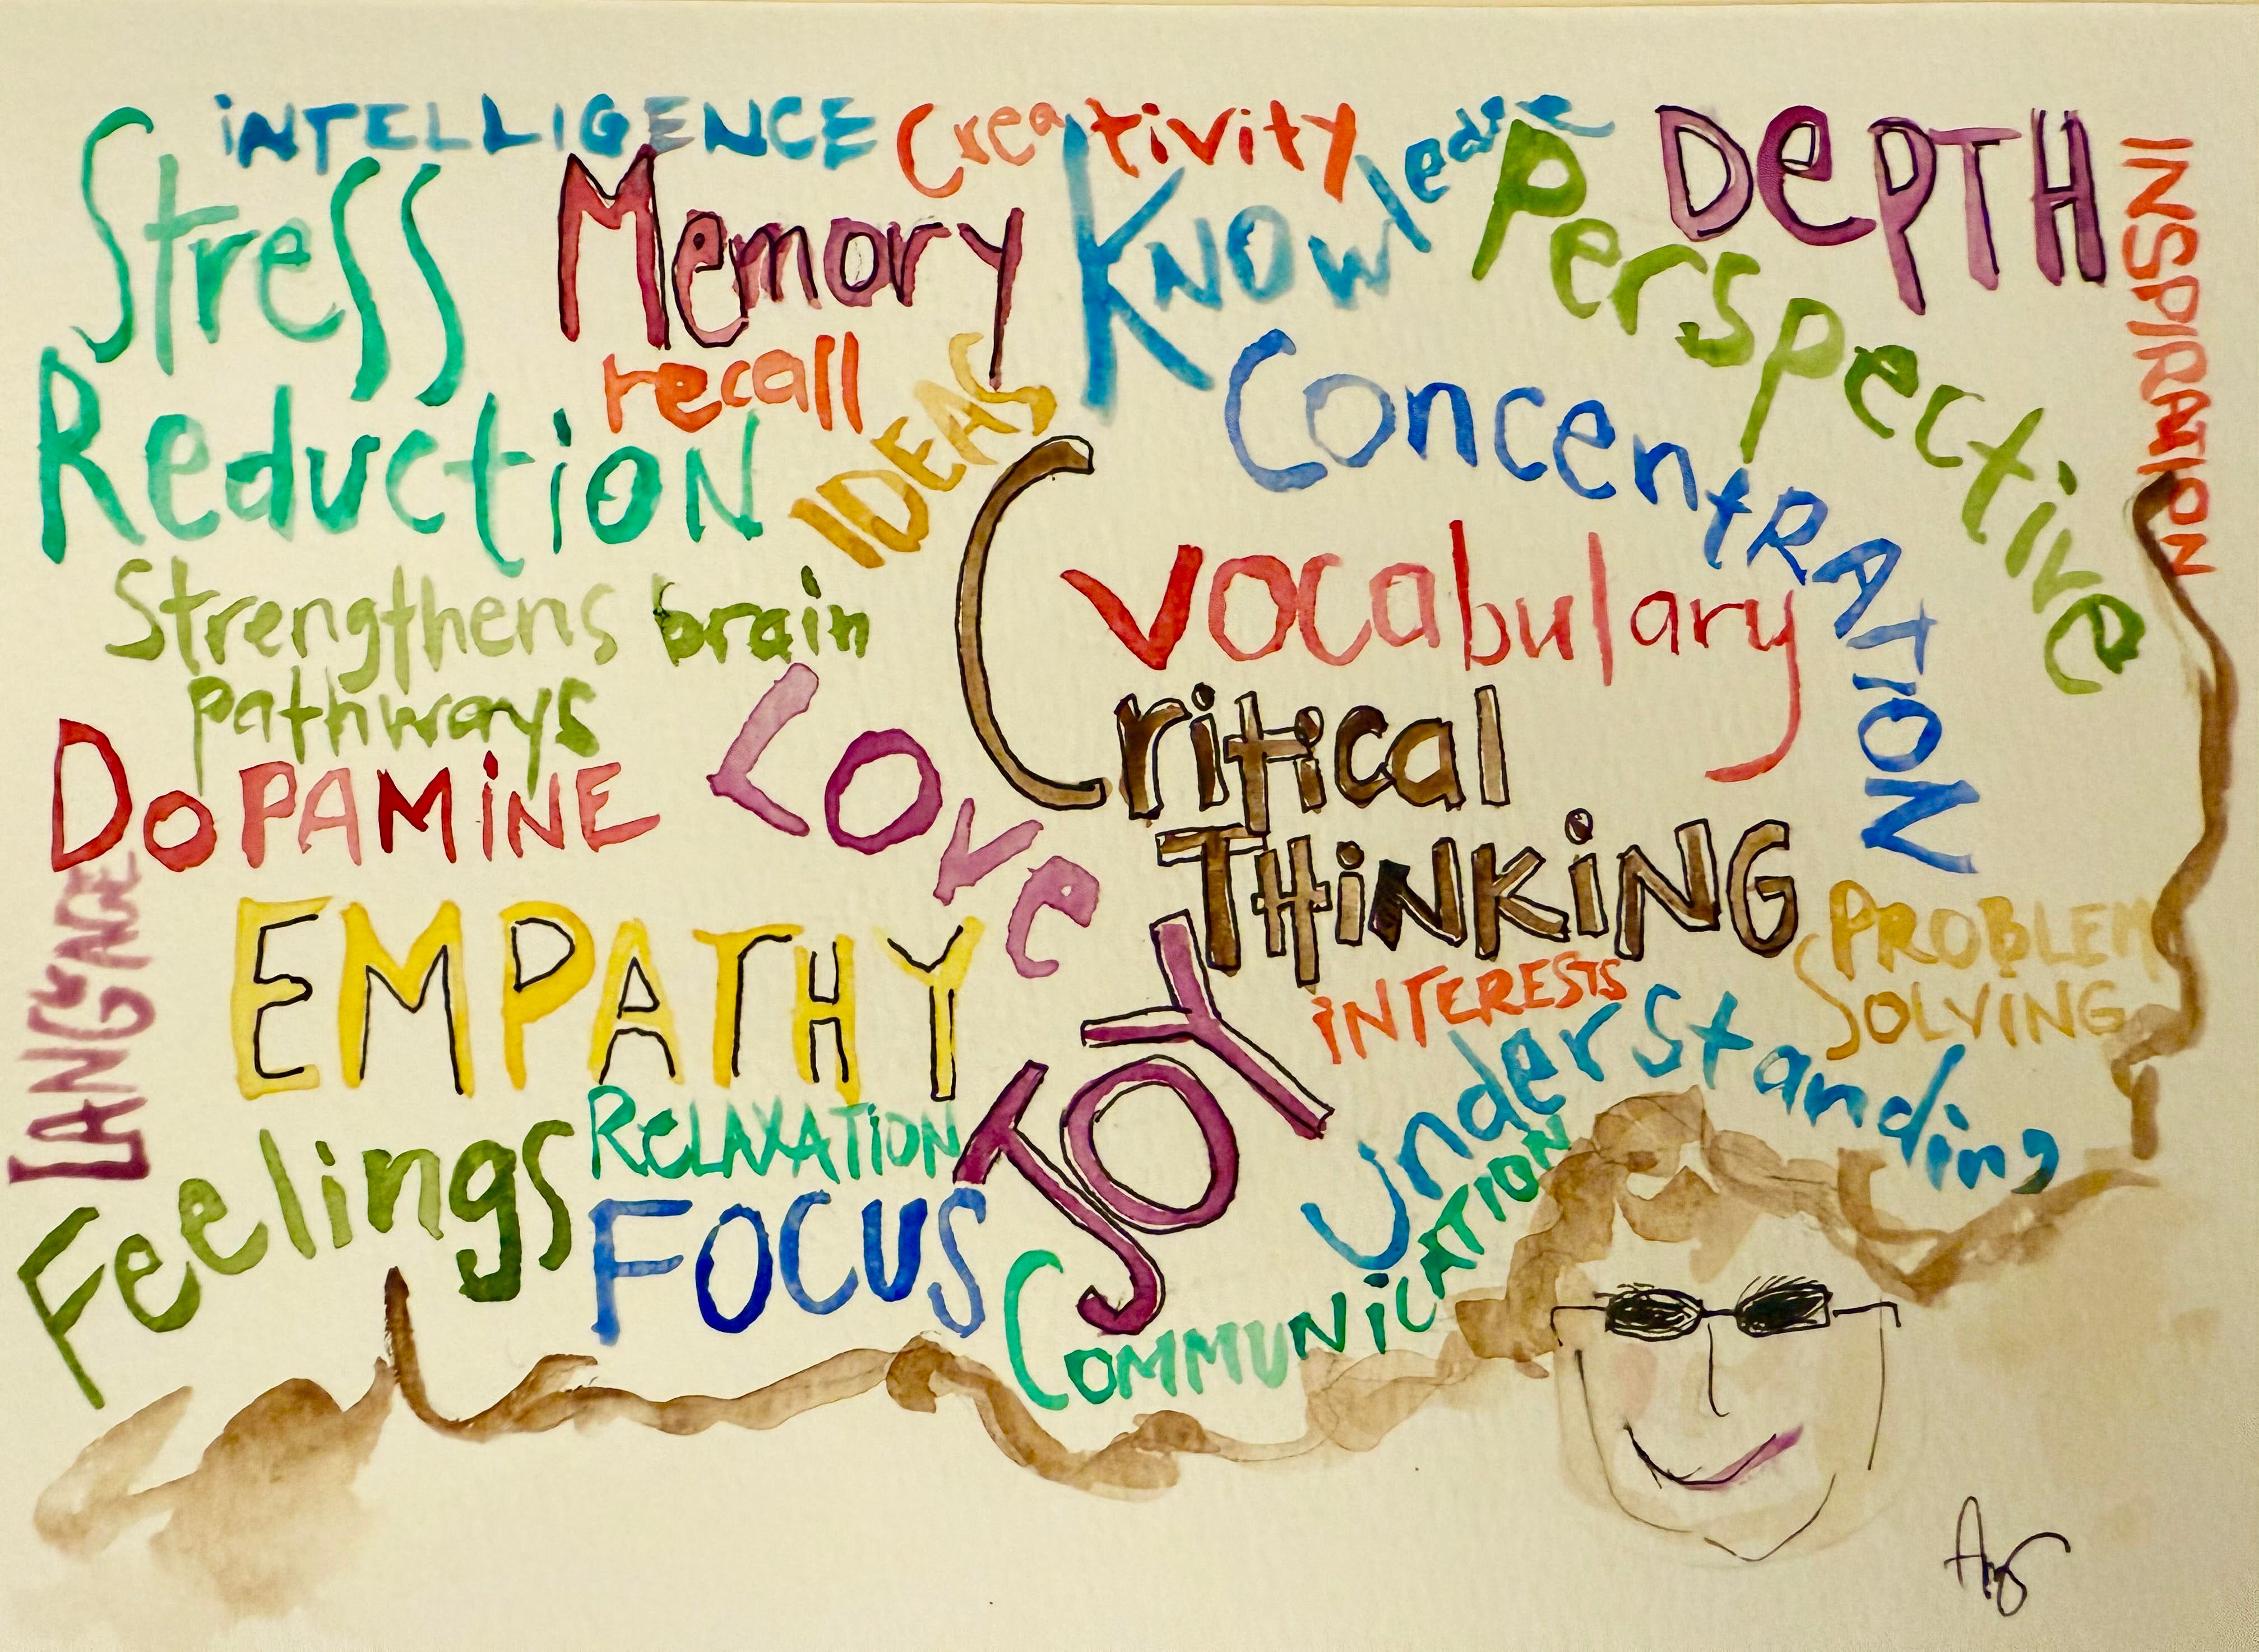 iNTELLIGENCE
Creativity
Knowledge
DePTH
INSPIRATION
Stress
Reduction
Memory
recall
IDEAS
Perspective
ConcentRATiON
Strengthens brain
pathways
vocabulary
DoPAMiNE
Love
Critical
THiNKiNG
LANGUAGE
EMPATHY
JOY
iNTERESTS
PROBLEM
SOLVING
Understanding
Feelings
ReLAXATiON
FOCUS
COMMUNiCATION